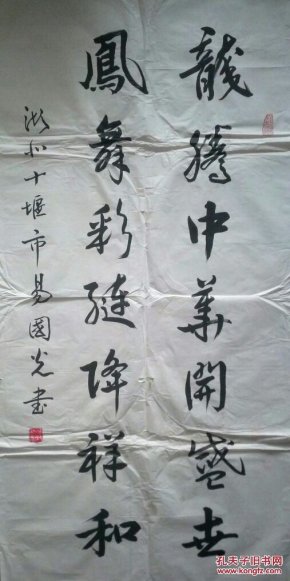 龍騰中華開盛世
鳳舞彩縫降祥和
湖北十堰市易國光書
孔夫子旧书网